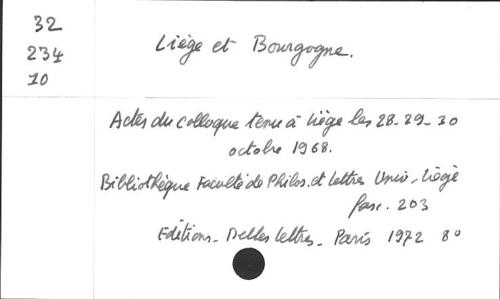 32
234
10
Liège et Bourgogne.
Actes du colloque tenu à Liège les 28-29-30
octobre 1968.
Bibliothèque Faculté de Philos. et lettres Univ. Liège
fasc. 203
Editions - Belles lettres - Paris 1972 8°